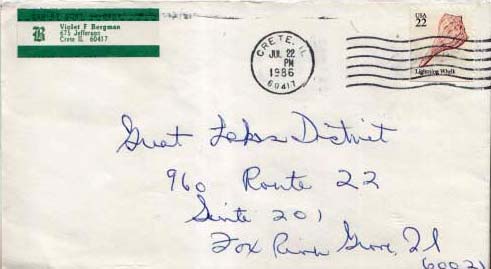 B
Violet F Bergman
475 Jefferson
Crete IL 60417
CRETE, IL
JUL 22
PM
1986
60417
USA
22
Lightning Whelk
Great Lakes District
960 Route 22
Suite 201
Fox River Grove, Il
60021